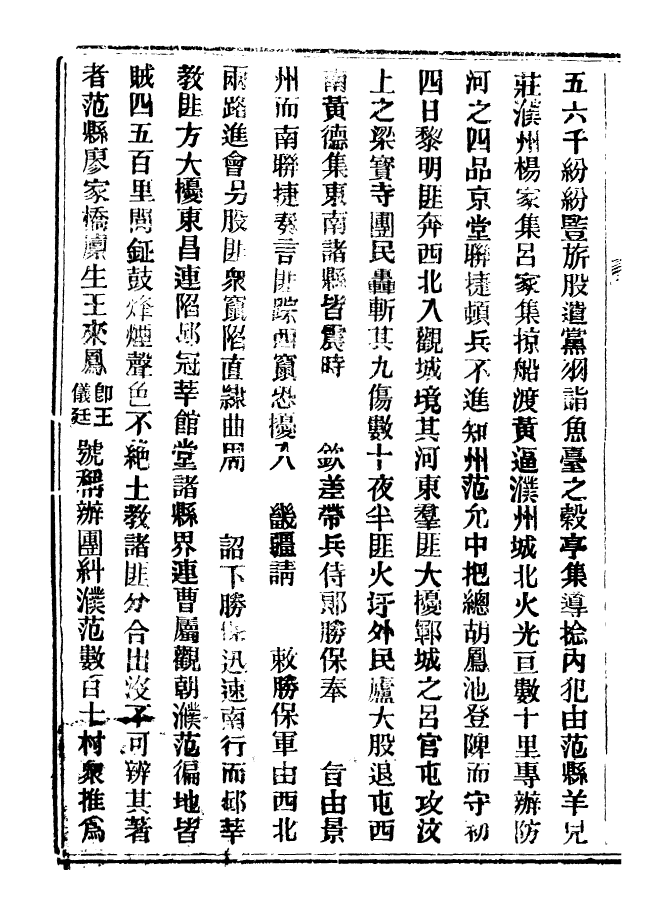 五六千紛紛豎旂股遣黨羽詣魚臺之榖亭集導捻內犯由范縣羊兒
莊濮州楊家集呂家集掠船渡黃逼濮州城北火光亘數十里專辦防
河之四品京堂聯捷頓兵不進知州范允中把總胡鳳池登陴而守初
四日黎明匪奔西北入觀城境其河東羣匪大擾鄆城之呂官屯攻汶
上之梁寶寺團民轟斬其九傷數十夜半匪火圩外民廬大股退屯西
南黃德集東南諸縣皆震時　欽差帶兵侍郎勝保奉　旨由景
州而南聯捷奏言匪踪西竄恐擾入　畿疆請　敕勝保軍由西北
兩路進會另股匪衆竄陷直隸曲周　詔下勝保迅速南行而邱莘
教匪方大擾東昌連陷邱冠莘館堂諸縣界連曹屬觀朝濮范徧地皆
賊四五百里間鉦鼓烽煙聲色不絶土教諸匪分合出沒不可辨其著
者范縣廖家橋廩生王來鳳卽王儀廷號稱辦團糾濮范數百十村衆推爲